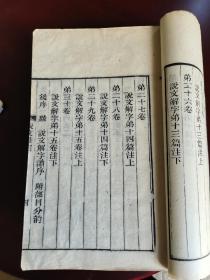 弟二十六卷
說文解字弟十三篇注下
弟二十七卷
說文解字弟十四篇注上
弟二十八卷
說文解字弟十四篇注下
弟二十九卷
說文解字弟十五卷注上
弟三十卷
說文解字弟十五卷注下
後序 跋 說文解字讀序 附部目分韵